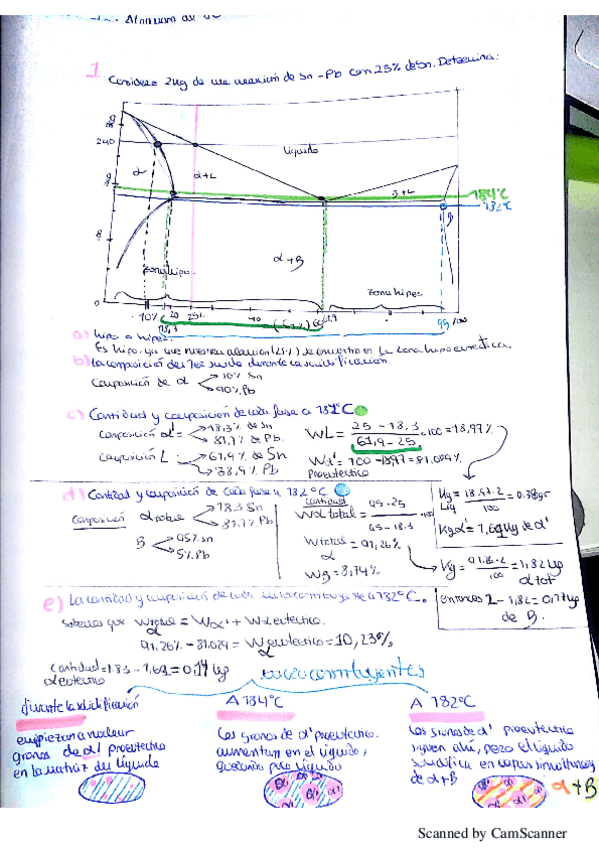 1 Considere 2kg de una aleación de Sn-Pb con 25% de Sn. Determina:
240
líquido
α
α+L
B+L
184°C
182°C
B
α+B
zona hipo.
zona hiper
0
10%
18,3
20
25%
40
61,9
95
100
a) hipo o hiper.
Es hipo, ya que nuestra aleación (25%) se encuentra en la zona hipoeutéctica.
b) La composición del 1er sólido durante la solidificación.
Composición de α
10% Sn
90% Pb
c) Cantidad y composición de cada fase a 184°C
Composición α' =
18,3% de Sn
81,7% de Pb
Composición L
61,9% de Sn
38,9% Pb
WL = 25 - 18,3 / 61,9 - 25 ·100 = 18,97%
Wα' = 100 - 18,97 = 81,029%
Proeutectico
d) Cantidad y composición de cada fase a 182°C
Composición
α total
18,3 Sn
81,7% Pb
B
95% Sn
5% Pb
Cantidad
Wα total = 95-25 / 95-18.3 ·100
Wtotal α = 91,26%
WB = 8,74%
Kg Liq = 18,97·2 / 100 = 0.38gr
Kg α' = 1,62 Kg de α'
Kg = 91.26·2 / 100 = 1,82 kg α tot
Entonces 2-1,82 = 0,17 kg de B.
e) La cantidad y composición de cada microconstituyente a 182°C.
Sabemos que Wtotal α = Wα' + Wα eutectico
91,26% - 81,029 = Weutectico α = 10,23%
Cantidad α eutectico = 1.83 - 1,62 = 0,17 kg
microconstituyentes
durante la solidificación
empiezan a nuclear
granos de α' proeutectico
en la matriz de líquido
A 184°C
Los granos de α' proeutectico.
aumentan en el líquido,
quedando poco líquido
A 182°C
Los granos de α' proeutectico
siguen ahí, pero el líquido
solidifica en capas simultáneas
de α+B
α+B
Scanned by CamScanner